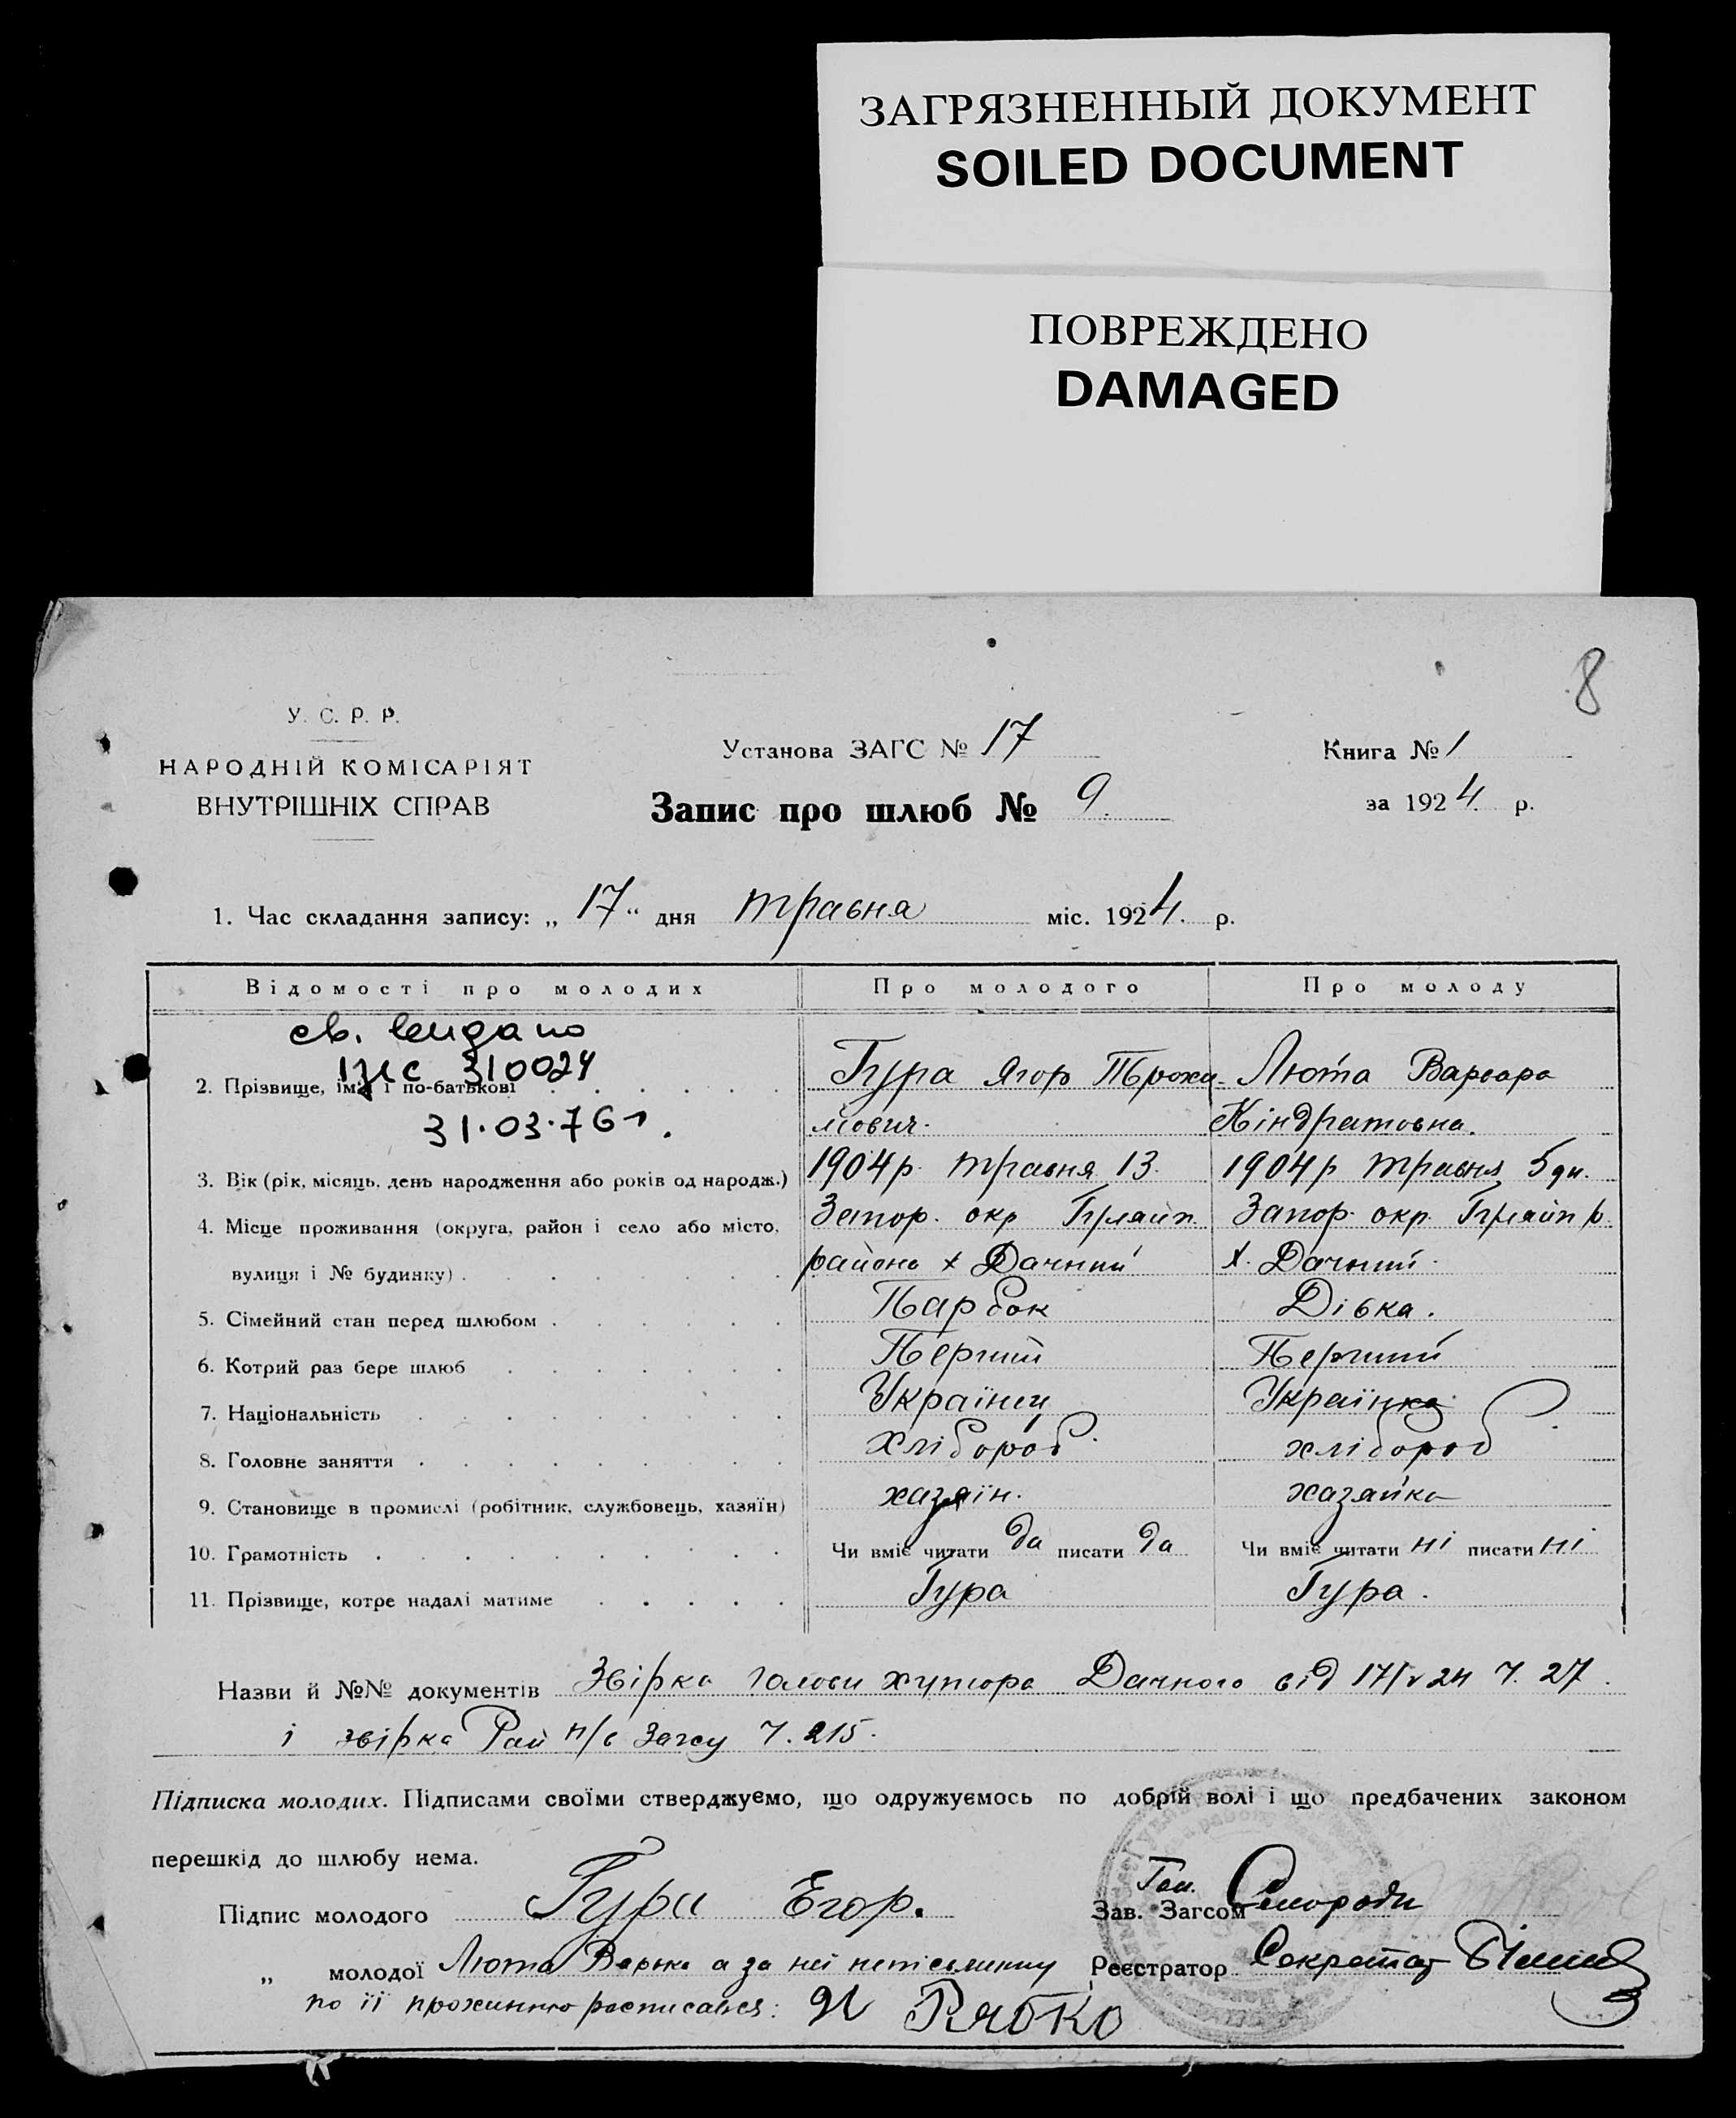 ЗАГРЯЗНЕННЫЙ ДОКУМЕНТ
SOILED DOCUMENT
ПОВРЕЖДЕНО
DAMAGED
8
У. С. Р. Р.
НАРОДНІЙ КОМІСАРІЯТ
ВНУТРІШНІХ СПРАВ
Установа ЗАГС № 17
Книга № 1
Запис про шлюб № 9.
за 1924 р.
1. Час складання запису: „ 17 “ дня травня міс. 1924. р.
Відомості про молодих
Про молодого
Про молоду
св. видано
310024
31.03.76г.
2. Прізвище, ім'я і по-батькові
Гура Ягор Трохи-
мович.
Люта Варвара
Кіндратовна.
3. Вік (рік, місяць, день народження або років од народж.)
1904 р. травня 13.
1904 р травня 5 дн.
4. Місце проживання (округа, район і село або місто,
вулиця і № будинку)
Запор. окр Гуляйп.
района х Дачний
Запор. окр. Гуляйп р.
х. Дачний.
5. Сімейний стан перед шлюбом
Парбок
Дівка.
6. Котрий раз бере шлюб
Перший
Перший
7. Національність
Українец
Українка
8. Головне заняття
Хлібороб.
хлібороб
9. Становище в промислі (робітник, службовець, хазяїн)
хазяїн.
хазяйка
10. Грамотність
Чи вміє читати да писати да
Чи вміє читати ні писати ні
11. Прізвище, котре надалі матиме
Гура
Гура.
Назви й №№ документів Звірка голови хутора Дачного від 17/V 24 Ч. 27.
і звірка Рай п/в Загсу Ч. 215.
Підписка молодих. Підписами своїми стверджуємо, що одружуємось по добрій волі і що предбачених законом
перешкід до шлюбу нема.
Підпис молодого Гура Егор.
Зав. Загсом
„ молодої Люта Варька а за неї неписьменну
Реєстратор Секретар
по її проханню расписався: Рябко